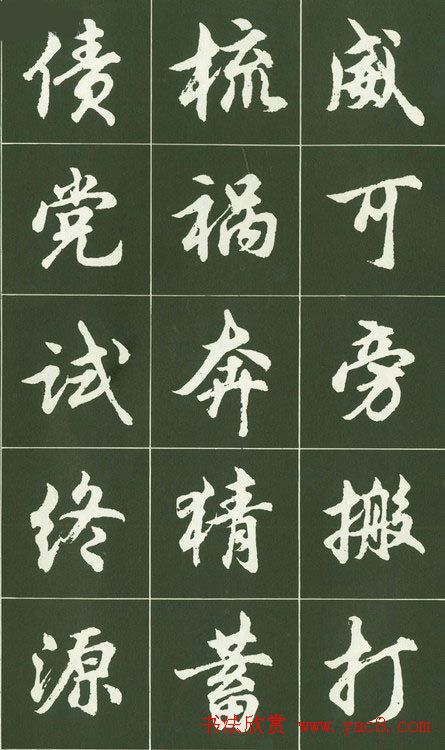 威可旁搬打
梳祸奔猜蓄
债党试终源
书法欣赏 www.yac8.com